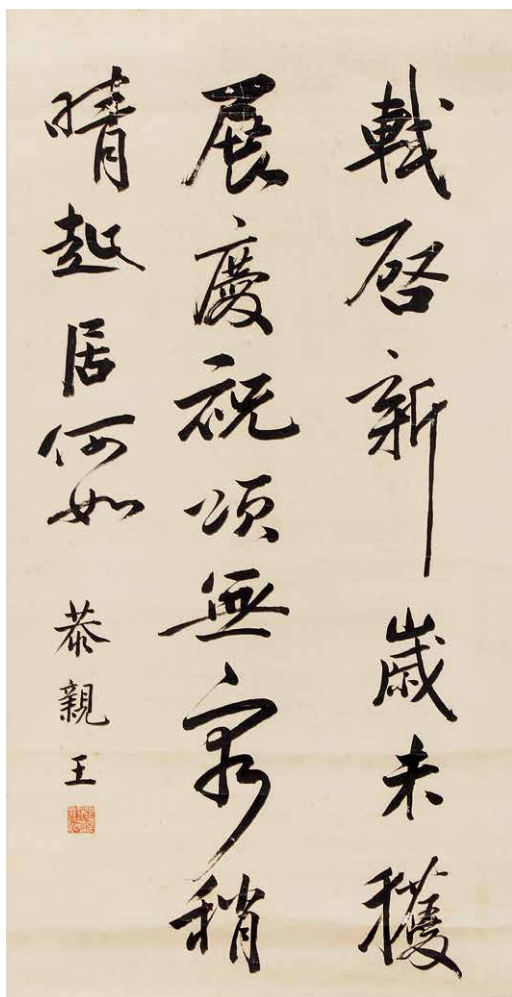 軾啓新歲未穫
展慶祝頌無窮稍
晴起居何如
恭親王